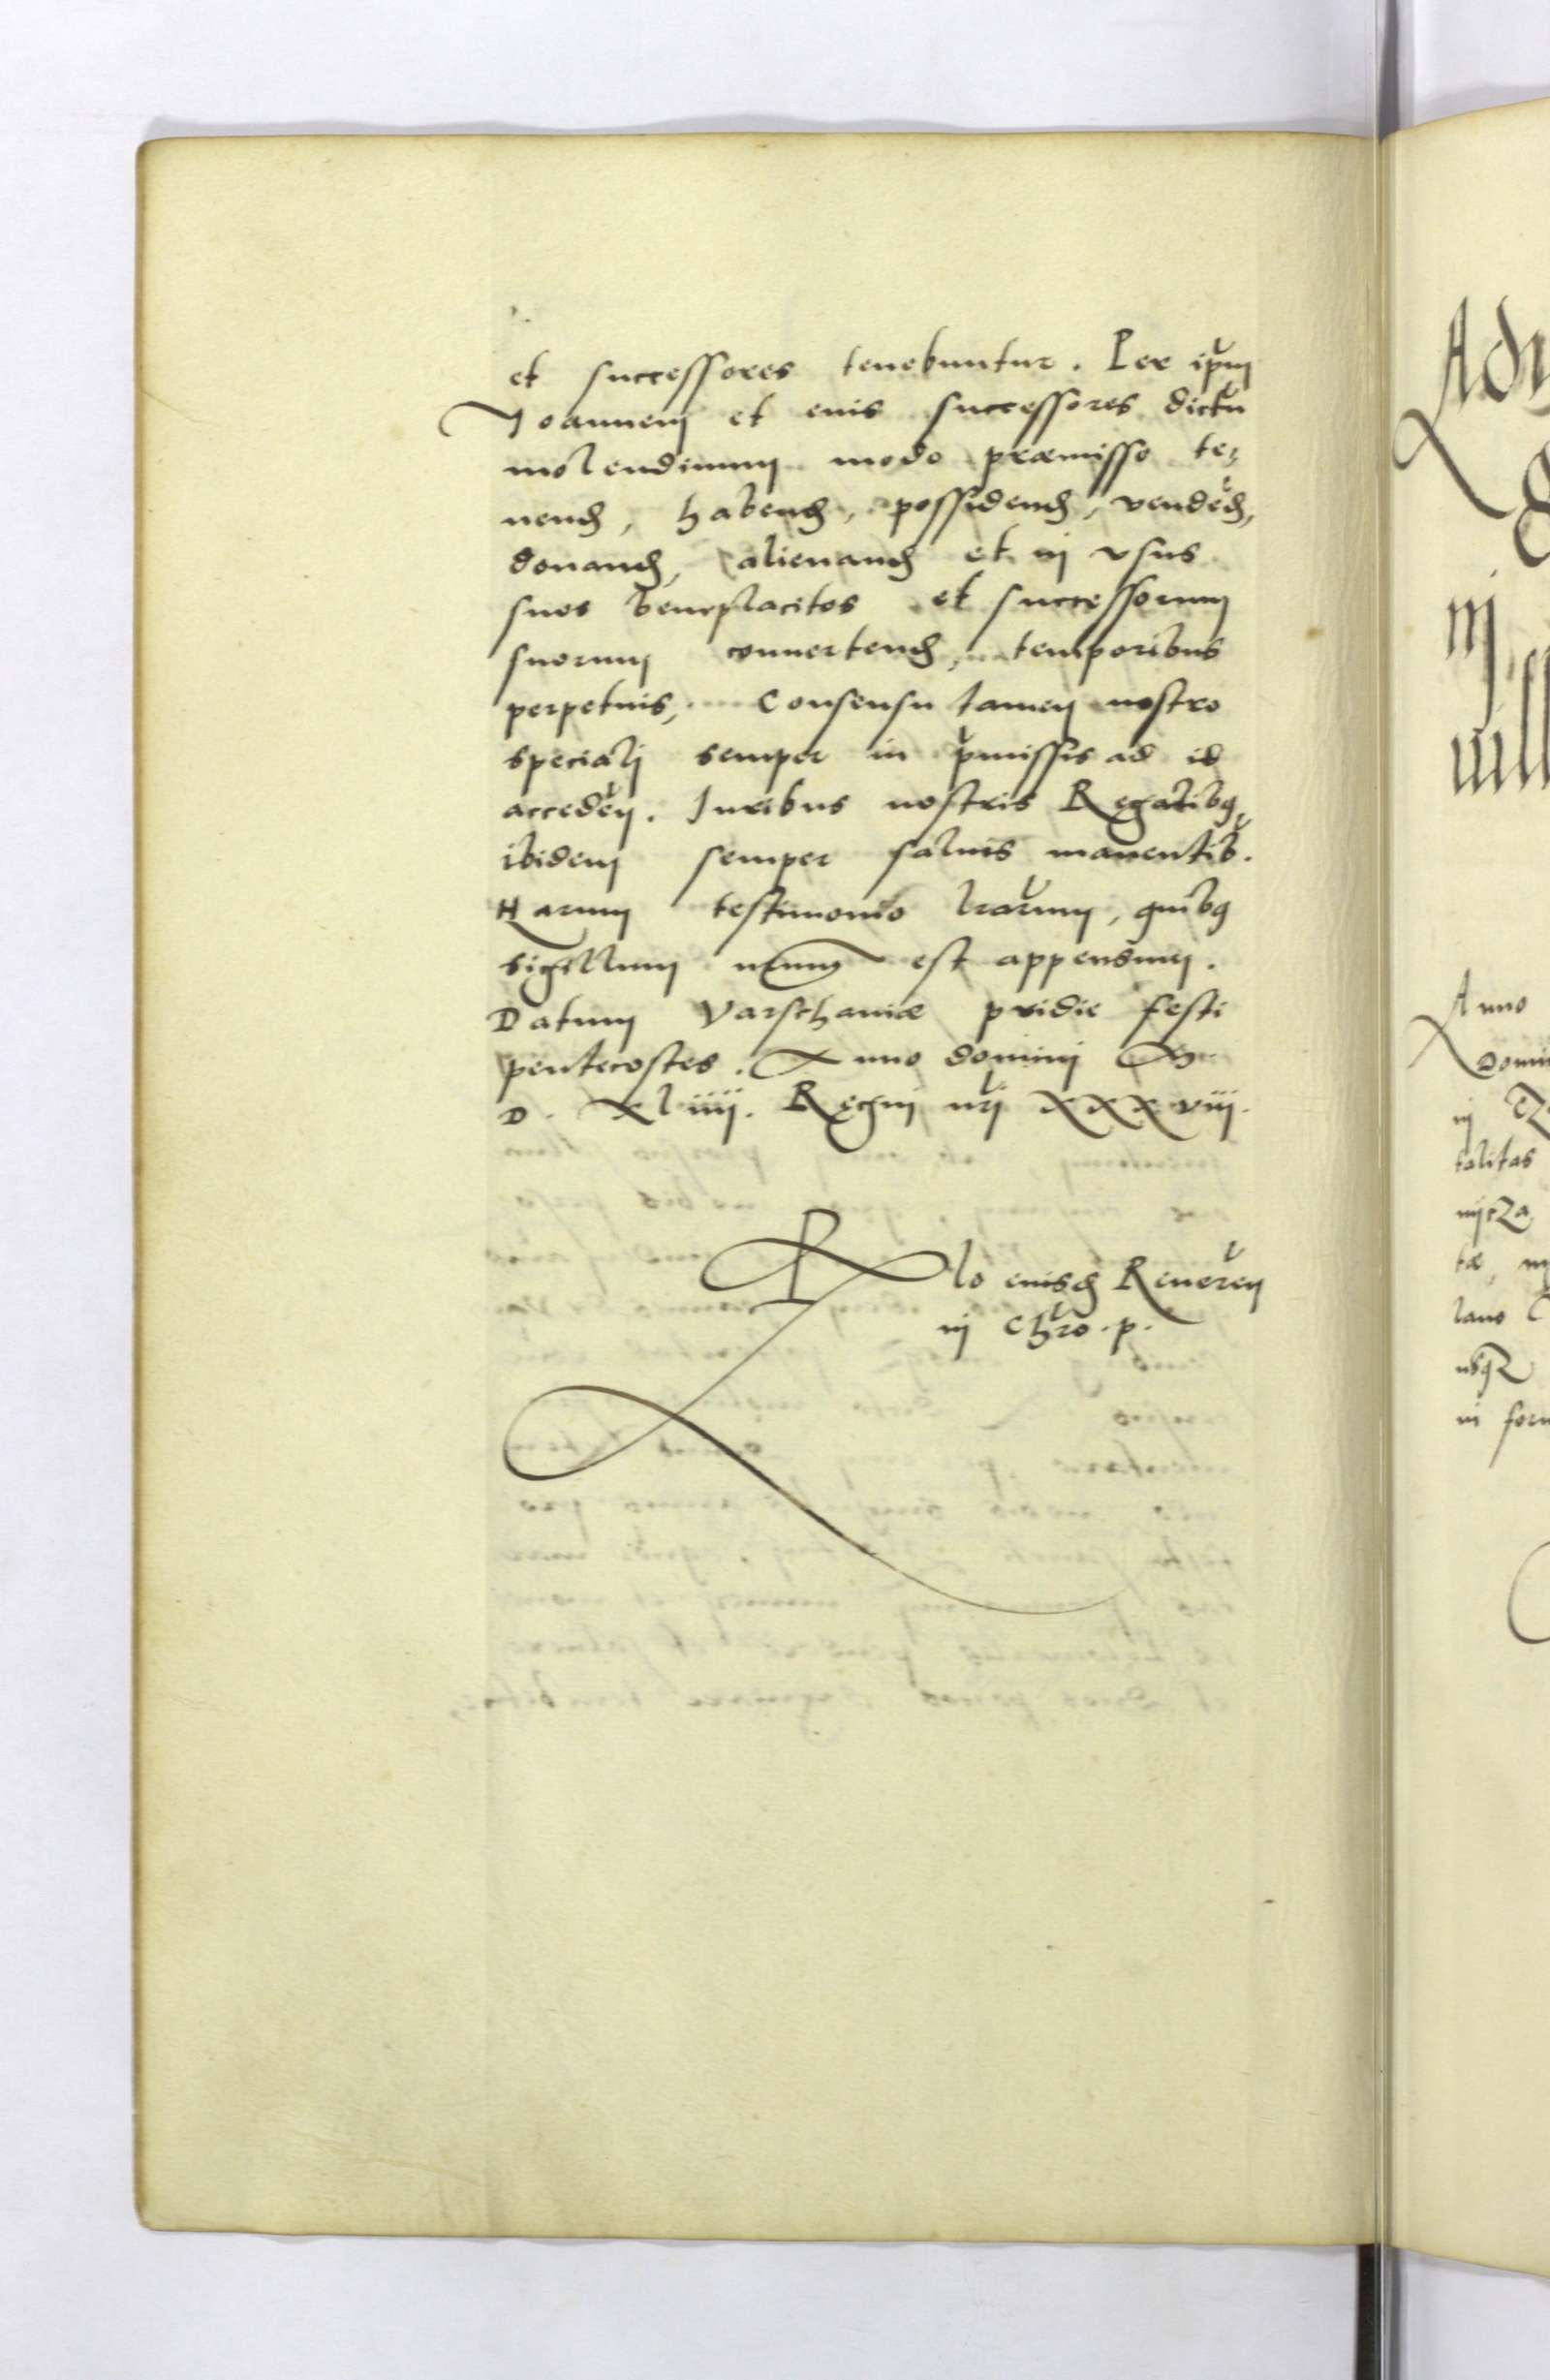 et successores tenebuntur. Per ip̃m
Joannem et eius successores dictũ
molendinum modo præmisso te-
nend, habend, possidend, vendẽd,
donand, alienand et in vsus
suos beneplacitos et successorum
suorum conuertend, temporibus
perpetuis, Consensu tamen nostro
speciali semper in p̃missis ad id
accedẽn. Juribus nostris Regalibq
ibidem semper saluis manentib̃.
Harum testimonio lr̃arum, quibq
sigillum nr̃um est appensum.
Datum Varschaviæ pridie festi
pentecostes. Anno domini M
D. XLiiij. Regni nr̃i XXXviij.
R̃lo eiusd Reuerẽn
in Chr̃o. p.
Anno
domi
in
talitas
nijcza
tæ, m
lano
usq
in for